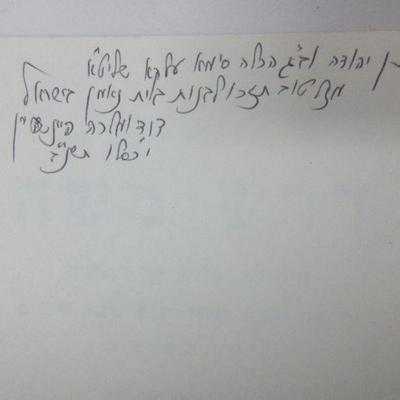 יהודה וב"ג הכלה סימא עלקא שליט"א
מזל טוב תזכו לבנות בית נאמן בישראל
דוד ומלכה
י' כסלו תשנ"ב